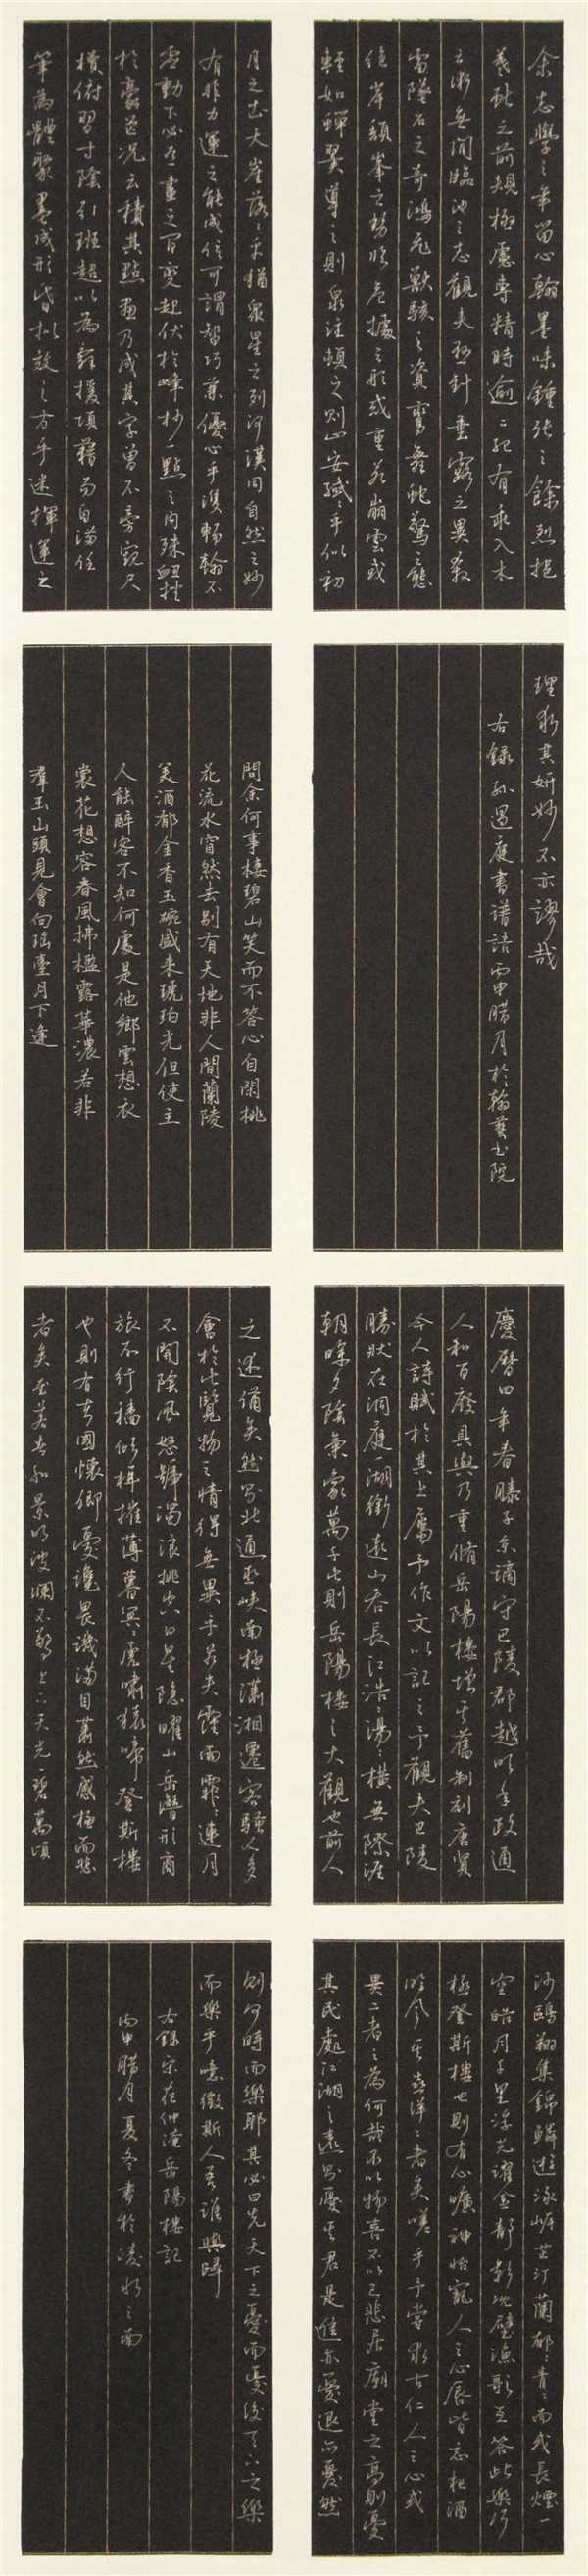 余志學之年留心翰墨味鍾張之餘烈挹
羲獻之前規極慮專精時逾二紀有乖入木
之術無間臨池之志觀夫懸針垂露之異奔
雷墜石之奇鴻飛獸駭之資鸞舞蛇驚之態
絕岸頹峯之勢臨危據之形或重若崩雲或
輕如蟬翼導之則泉注頓之則山安纖纖乎似初
月之出天崖落落乎猶衆星之列河漢同自然之妙
有非力運之能成信可謂智巧兼優心手雙暢翰不
虛動下必有畫之間變起伏於峰杪一點之內殊衄挫
於豪芒況云積其點畫乃成其字曾不旁窺尺
櫝俯習寸陰引班超以為辭援項籍而自滿任
筆為體聚墨成形昏擬效之方手迷揮運之
理求其妍妙不亦謬哉
右錄孫過庭書譜語丙申腊月於翰藝書院
問余何事棲碧山笑而不答心自閑桃
花流水窅然去別有天地非人間蘭陵
美酒郁金香玉碗盛來琥珀光但使主
人能醉客不知何處是他鄉雲想衣
裳花想容春風拂檻露華濃若非
羣玉山頭見會向瑤臺月下逢
慶曆四年春滕子京謫守巴陵郡越明年政通
人和百廢具興乃重脩岳陽樓增其舊制刻唐賢
今人詩賦於其上屬予作文以記之予觀夫巴陵
勝狀在洞庭一湖銜遠山吞長江浩浩湯湯橫無際涯
朝暉夕陰氣象萬千此則岳陽樓之大觀也前人
之述備矣然則北通巫峽南極瀟湘遷客騷人多
會於此覽物之情得無異乎若夫霪雨霏霏連月
不開陰風怒號濁浪排空日星隱曜山岳潛形商
旅不行檣傾楫摧薄暮冥冥虎嘯猿啼登斯樓
也則有去國懷鄉憂讒畏譏滿目蕭然感極而悲
者矣至若春和景明波瀾不驚上下天光一碧萬頃
沙鷗翔集錦鱗游泳岸芷汀蘭郁郁青青而或長煙一
空皓月千里浮光躍金靜影沉璧漁歌互答此樂何
極登斯樓也則有心曠神怡寵人之心辱皆忘把酒
臨風其喜洋洋者矣嗟乎予嘗求古仁人之心或
異二者之為何哉不以物喜不以己悲居廟堂之高則憂
其民處江湖之遠則憂其君是進亦憂退亦憂然
則何時而樂耶其必曰先天下之憂而憂後天下之樂
而樂乎噫微斯人吾誰與歸
右錄宋范仲淹岳陽樓記
丙申腊月夏冬書於淩水之南